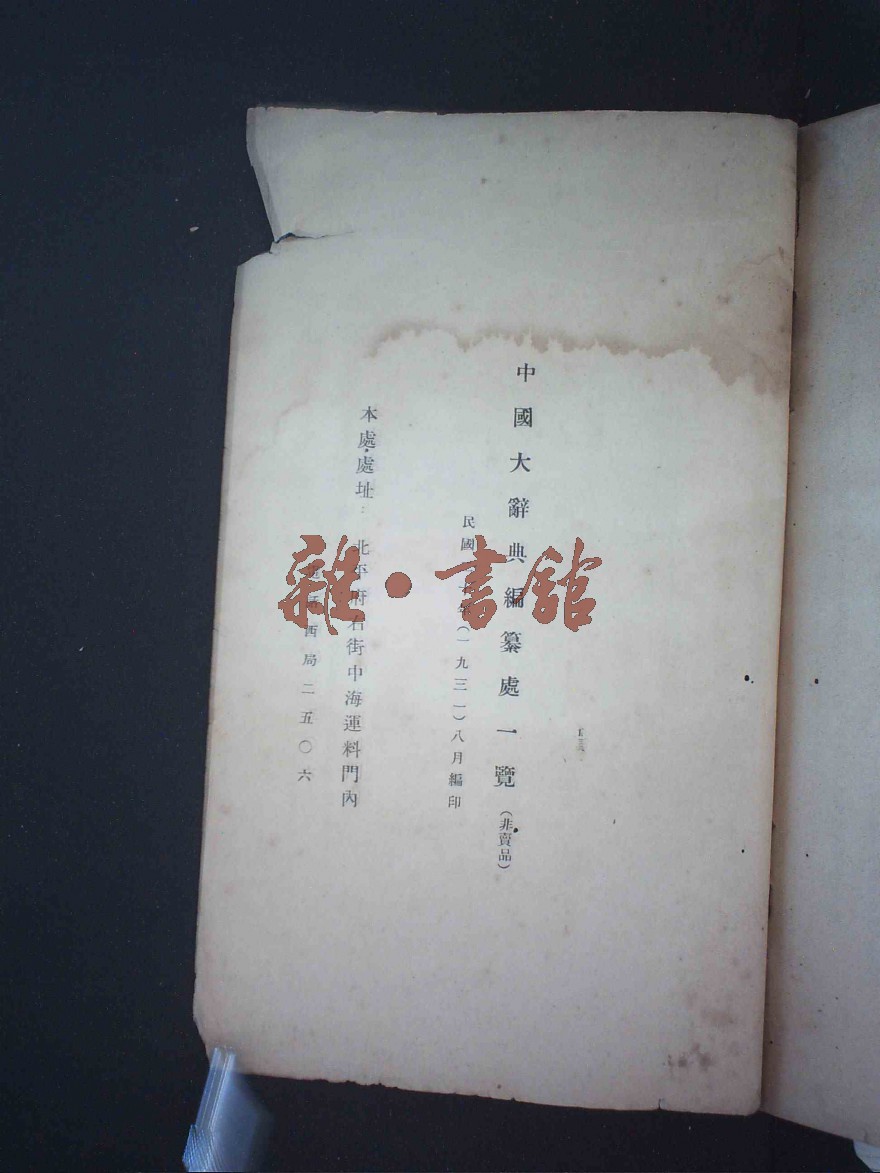 中國大辭典編纂處一覽(非賣品)
民國十年(一九三一)八月編印
本處處址：北平府右街中海運料門內
電話西局二五〇六
雜·書館